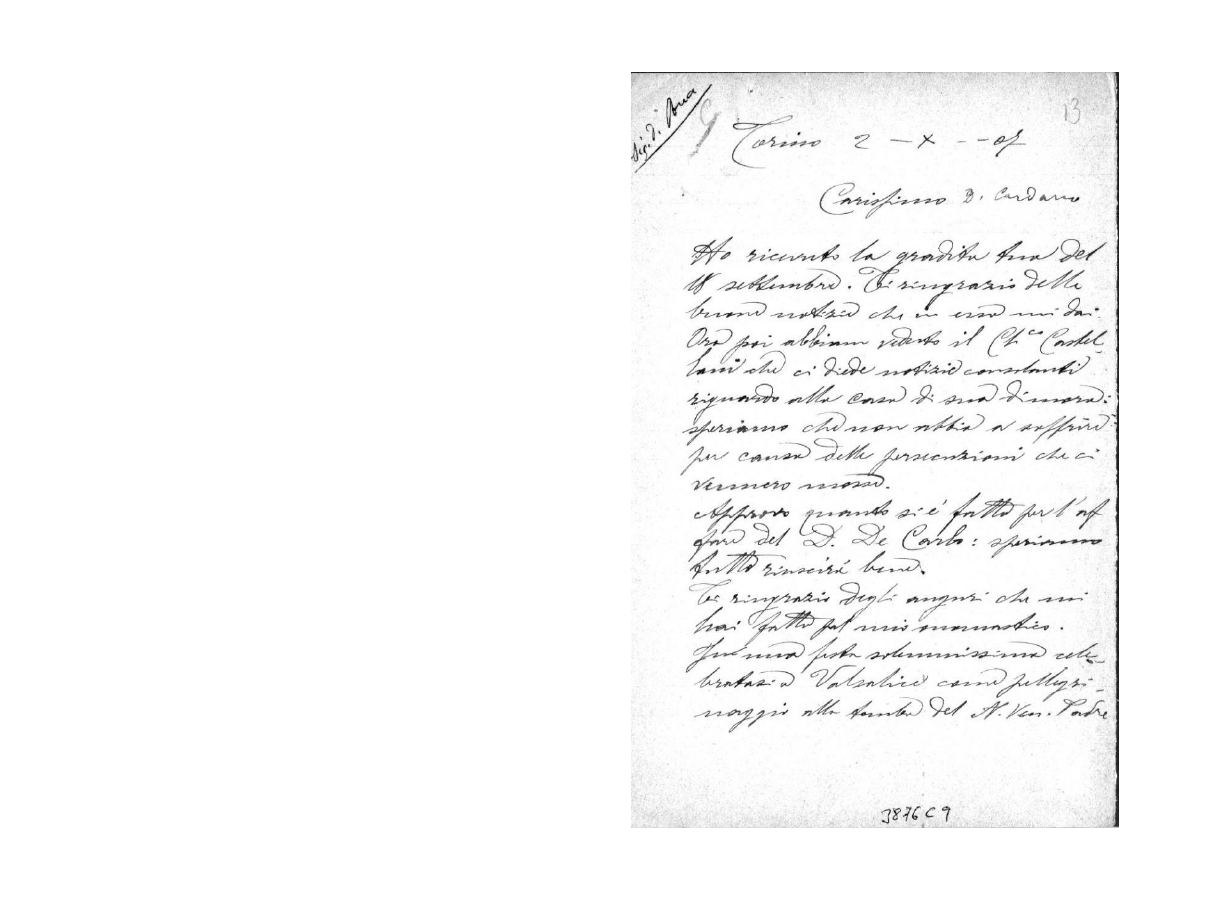 Sig. D. Rua
13
Torino 2 - X - - 07
Carissimo D. Cardano
Ho ricevuto la gradita tua del
18 settembre. Ti ringrazio delle
buone notizie che in essa mi dai.
Ora poi abbiam veduto il Ch.co Castel-
lani che ci diede notizie consolanti
riguardo alla casa di sua dimora:
speriamo che non abbia a soffrire
per causa delle persecuzioni che ci
vennero mosse.
Approvo quanto si é fatto per l'af
fare del D. De Carlo: speriamo
tutto riuscirá bene.
Ti ringrazio degli auguri che mi
hai fatto pel mio onomastico.
Fu una festa solennissima cele-
bratasi a Valsalice come pellegri-
naggio alla tomba del N. Ven. Padre
3876 C 9